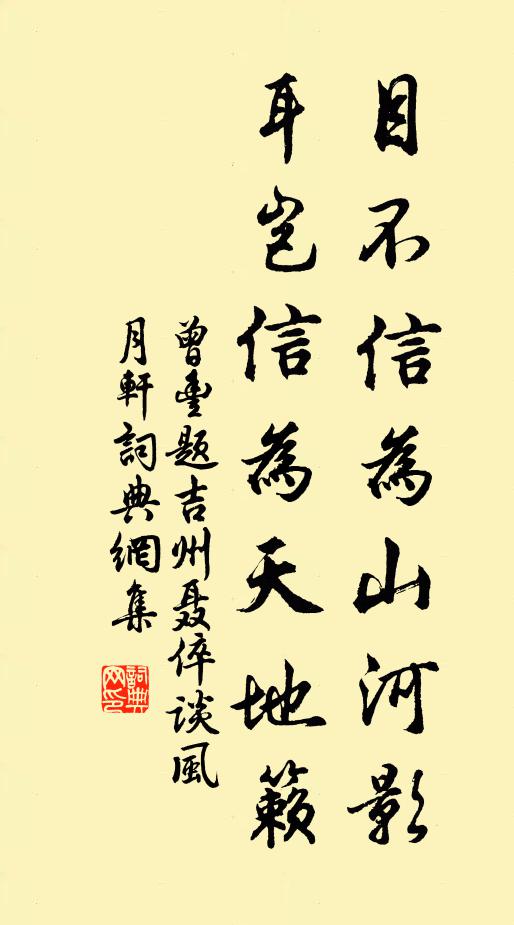 目不信為山河影
耳豈信為天地籟
曾豐題吉州聂倅談風
月軒詞典網集
詞典
网印